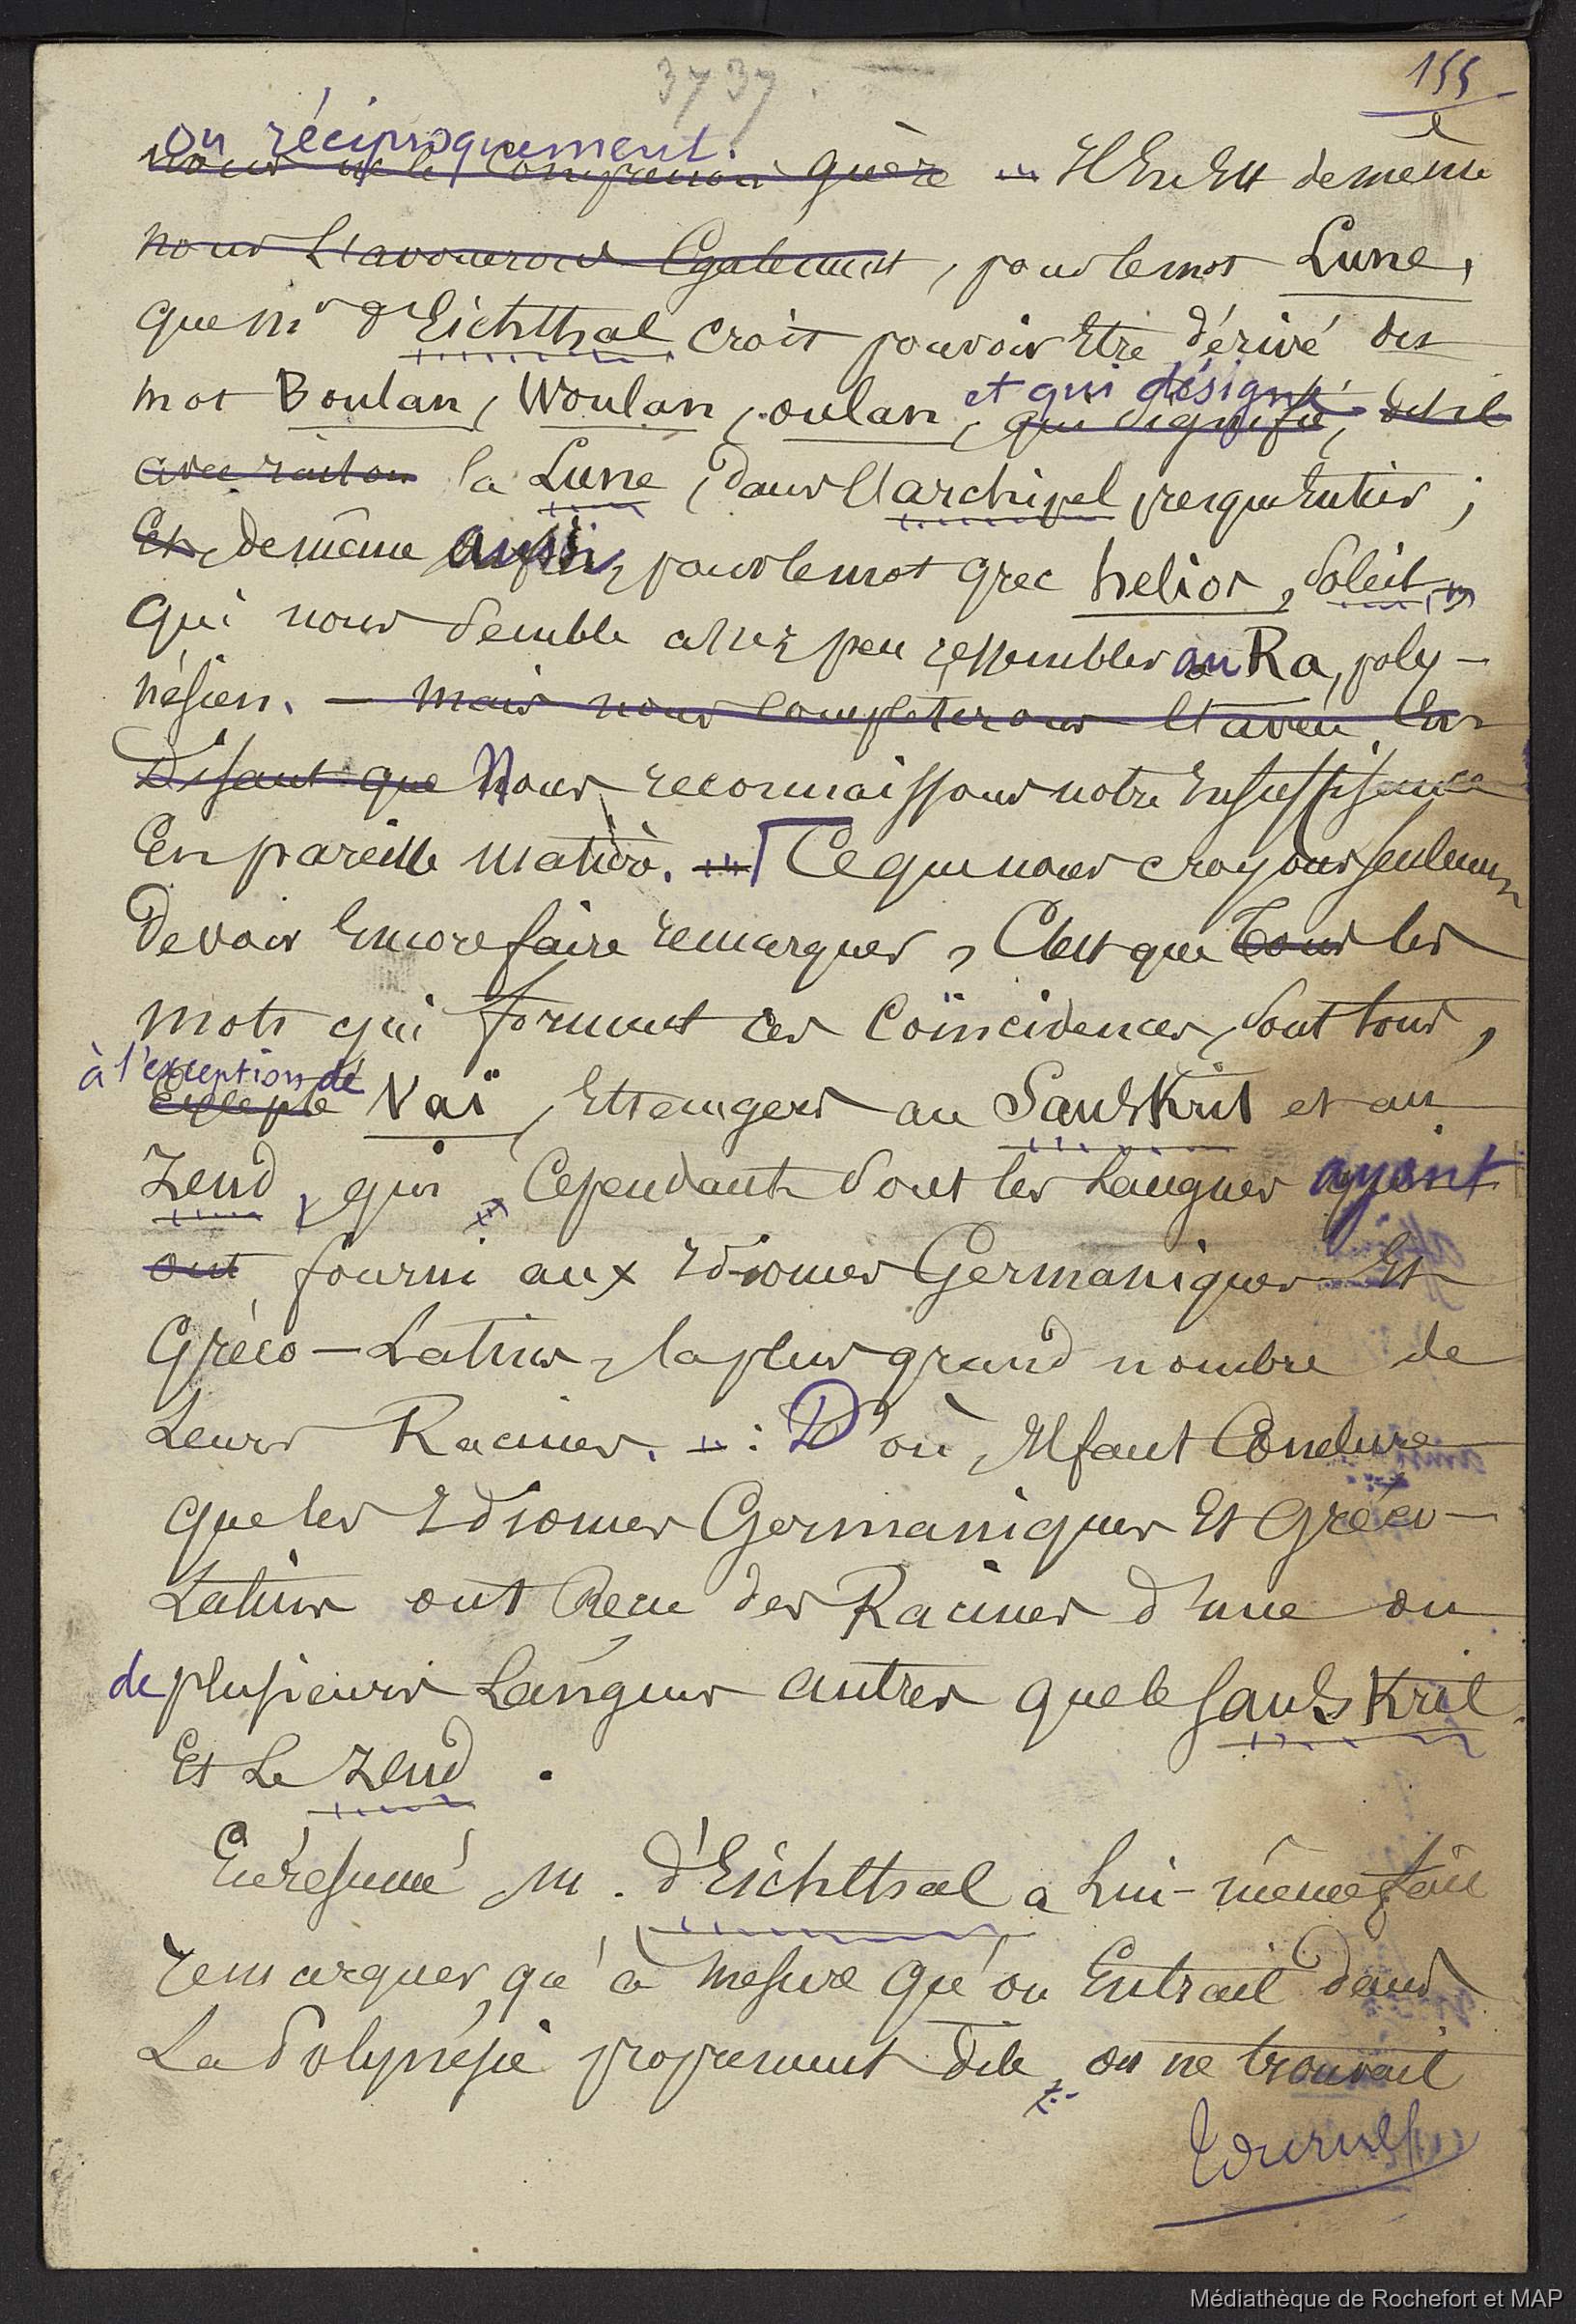 3737.
155
ou réciproquement.
nous ne le comprenons guère Il En Est de même
nous L'avouerons Egalement, pour le mot Lune,
que Mr d'Eichthal croit pouvoir Etre dérivé des
mot Boulan, Woulan, oulan, et qui désigne qui signifie, dit-il
avec raison la Lune, dans l'archipel presqu'entier ;
Et, de même aussi, pour le mot grec helios, Soleil,
qui nous semble assez peu ressembler au Ra, poly-
nésien. — mais nous completerons l'aveu En
Disant que Nous reconnaissons notre Insuffisance
En pareille matière. Ce que nous croyons seulement
Devoir Encore faire remarquer, C'est que tous les
mots qui forment ces Coïncidences, sont tous,
à l'exception de
Excepté Vaï, Etrangers au Sanskrit et au
Zend, qui, Cependant sont les Langues ayant
ont fourni aux Idiomes Germaniques Et
Gréco-Latins, la plus grand nombre de
Leurs Racines. : D'où, Il faut Conclure
que les Idiomes Germaniques Et Gréco-
Latins ont Reçu des Racines d'une ou
de plusieurs Langues autres que le Sanskrit
Et Le Zend.
En résumé, M. d'Eichthal a Lui-même fait
remarquer, qu'à mesure qu'on Entrait dans
La Polynésie proprement dite, on ne trouvait
Médiathèque de Rochefort et MAP